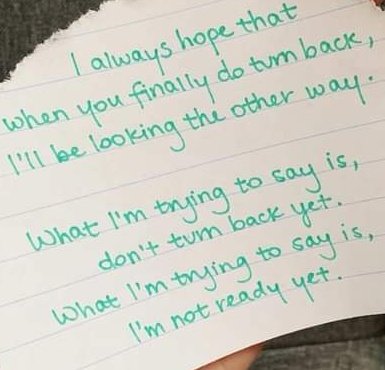 I always hope that
when you finally do turn back,
I'll be looking the other way.
What I'm trying to say is,
don't turn back yet.
What I'm trying to say is,
I'm not ready yet.